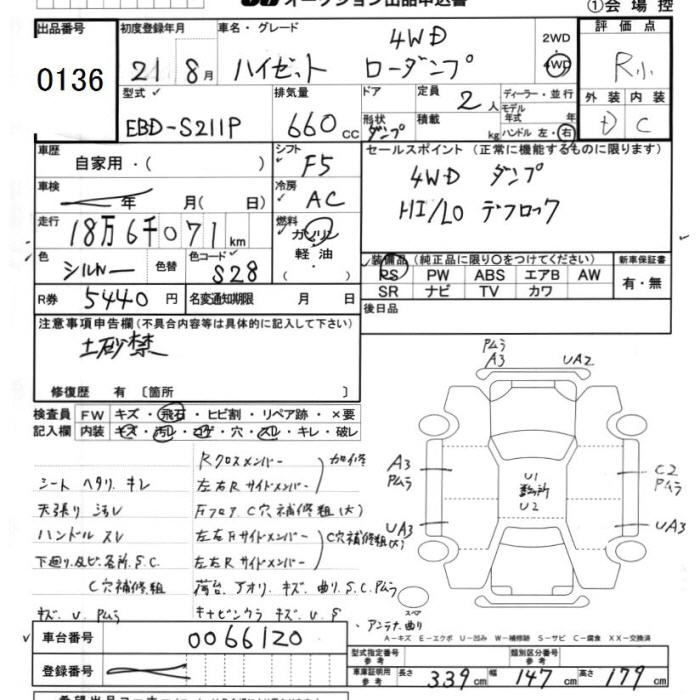 オークション出品申込書
①会場控
出品番号 0136
初度登録年月 21 8月
車名・グレード ハイゼット 4WD ローダンプ
2WD 4WD
評価点 R小
外装 D 内装 C
型式 EBD-S211P
排気量 660cc
ドア 形状 ダンプ
定員 2人
積載 kg
ディーラー・並行
モデル年式 年
ハンドル 左・右
車歴 自家用・( )
シフト F5
セールスポイント (正常に機能するものに限ります)
4WD ダンプ
HI/LO デフロック
車検 年 月(日)
冷房 AC
走行 18万6千071km
燃料 ガソリン・軽油・( )
色 シルバー 色替
色コード S28
装備品 (純正品に限り〇をつけてください)
PS PW ABS エアB AW
SR ナビ TV カワ
新車保証書 有・無
R券 5440円
名変通知期限 月 日
後日品
注意事項申告欄 (不具合内容等は具体的に記入して下さい)
土砂禁
修復歴 有 〔箇所 〕
検査員記入欄
FW キズ・飛石・ヒビ割・リペア跡・×要
内装 キズ・汚レ・コゲ・穴・スレ・キレ・破レ
シート ヘタリ、キレ
天張り 汚レ
ハンドル スレ
下廻り及ビ各所 S.C
C穴補修粗
キズ、U、Pムラ
Rクロスメンバー
左右Rサイドメンバー
加修
Fフロア C穴補修粗(大)
左右Fサイドメンバー
左右Rサイドメンバー
C穴補修粗(大)
荷台、アオリ キズ 曲り S.C.Pムラ
キャビンウラ キズ、U、S
アンテナ曲り
Pムラ
A3
UA2
A3
Pムラ
UA3
U1
U2
C2
Pムラ
UA3
スペア
A－キズ E－エクボ U－凹み W－補修跡 S－サビ C－腐食 XX－交換済
車台番号 0066120
登録番号
型式指定番号 参考
類別区分番号 参考
車庫証明用 参考 長さ 339cm 幅 147cm 高さ 179cm